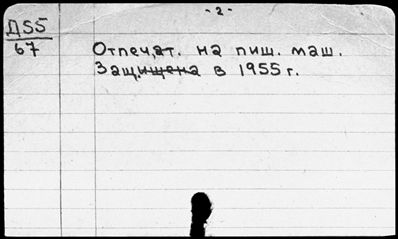 - 2 -
Д55
67
Отпечат. на пиш. маш.
Защищена в 1955 г.